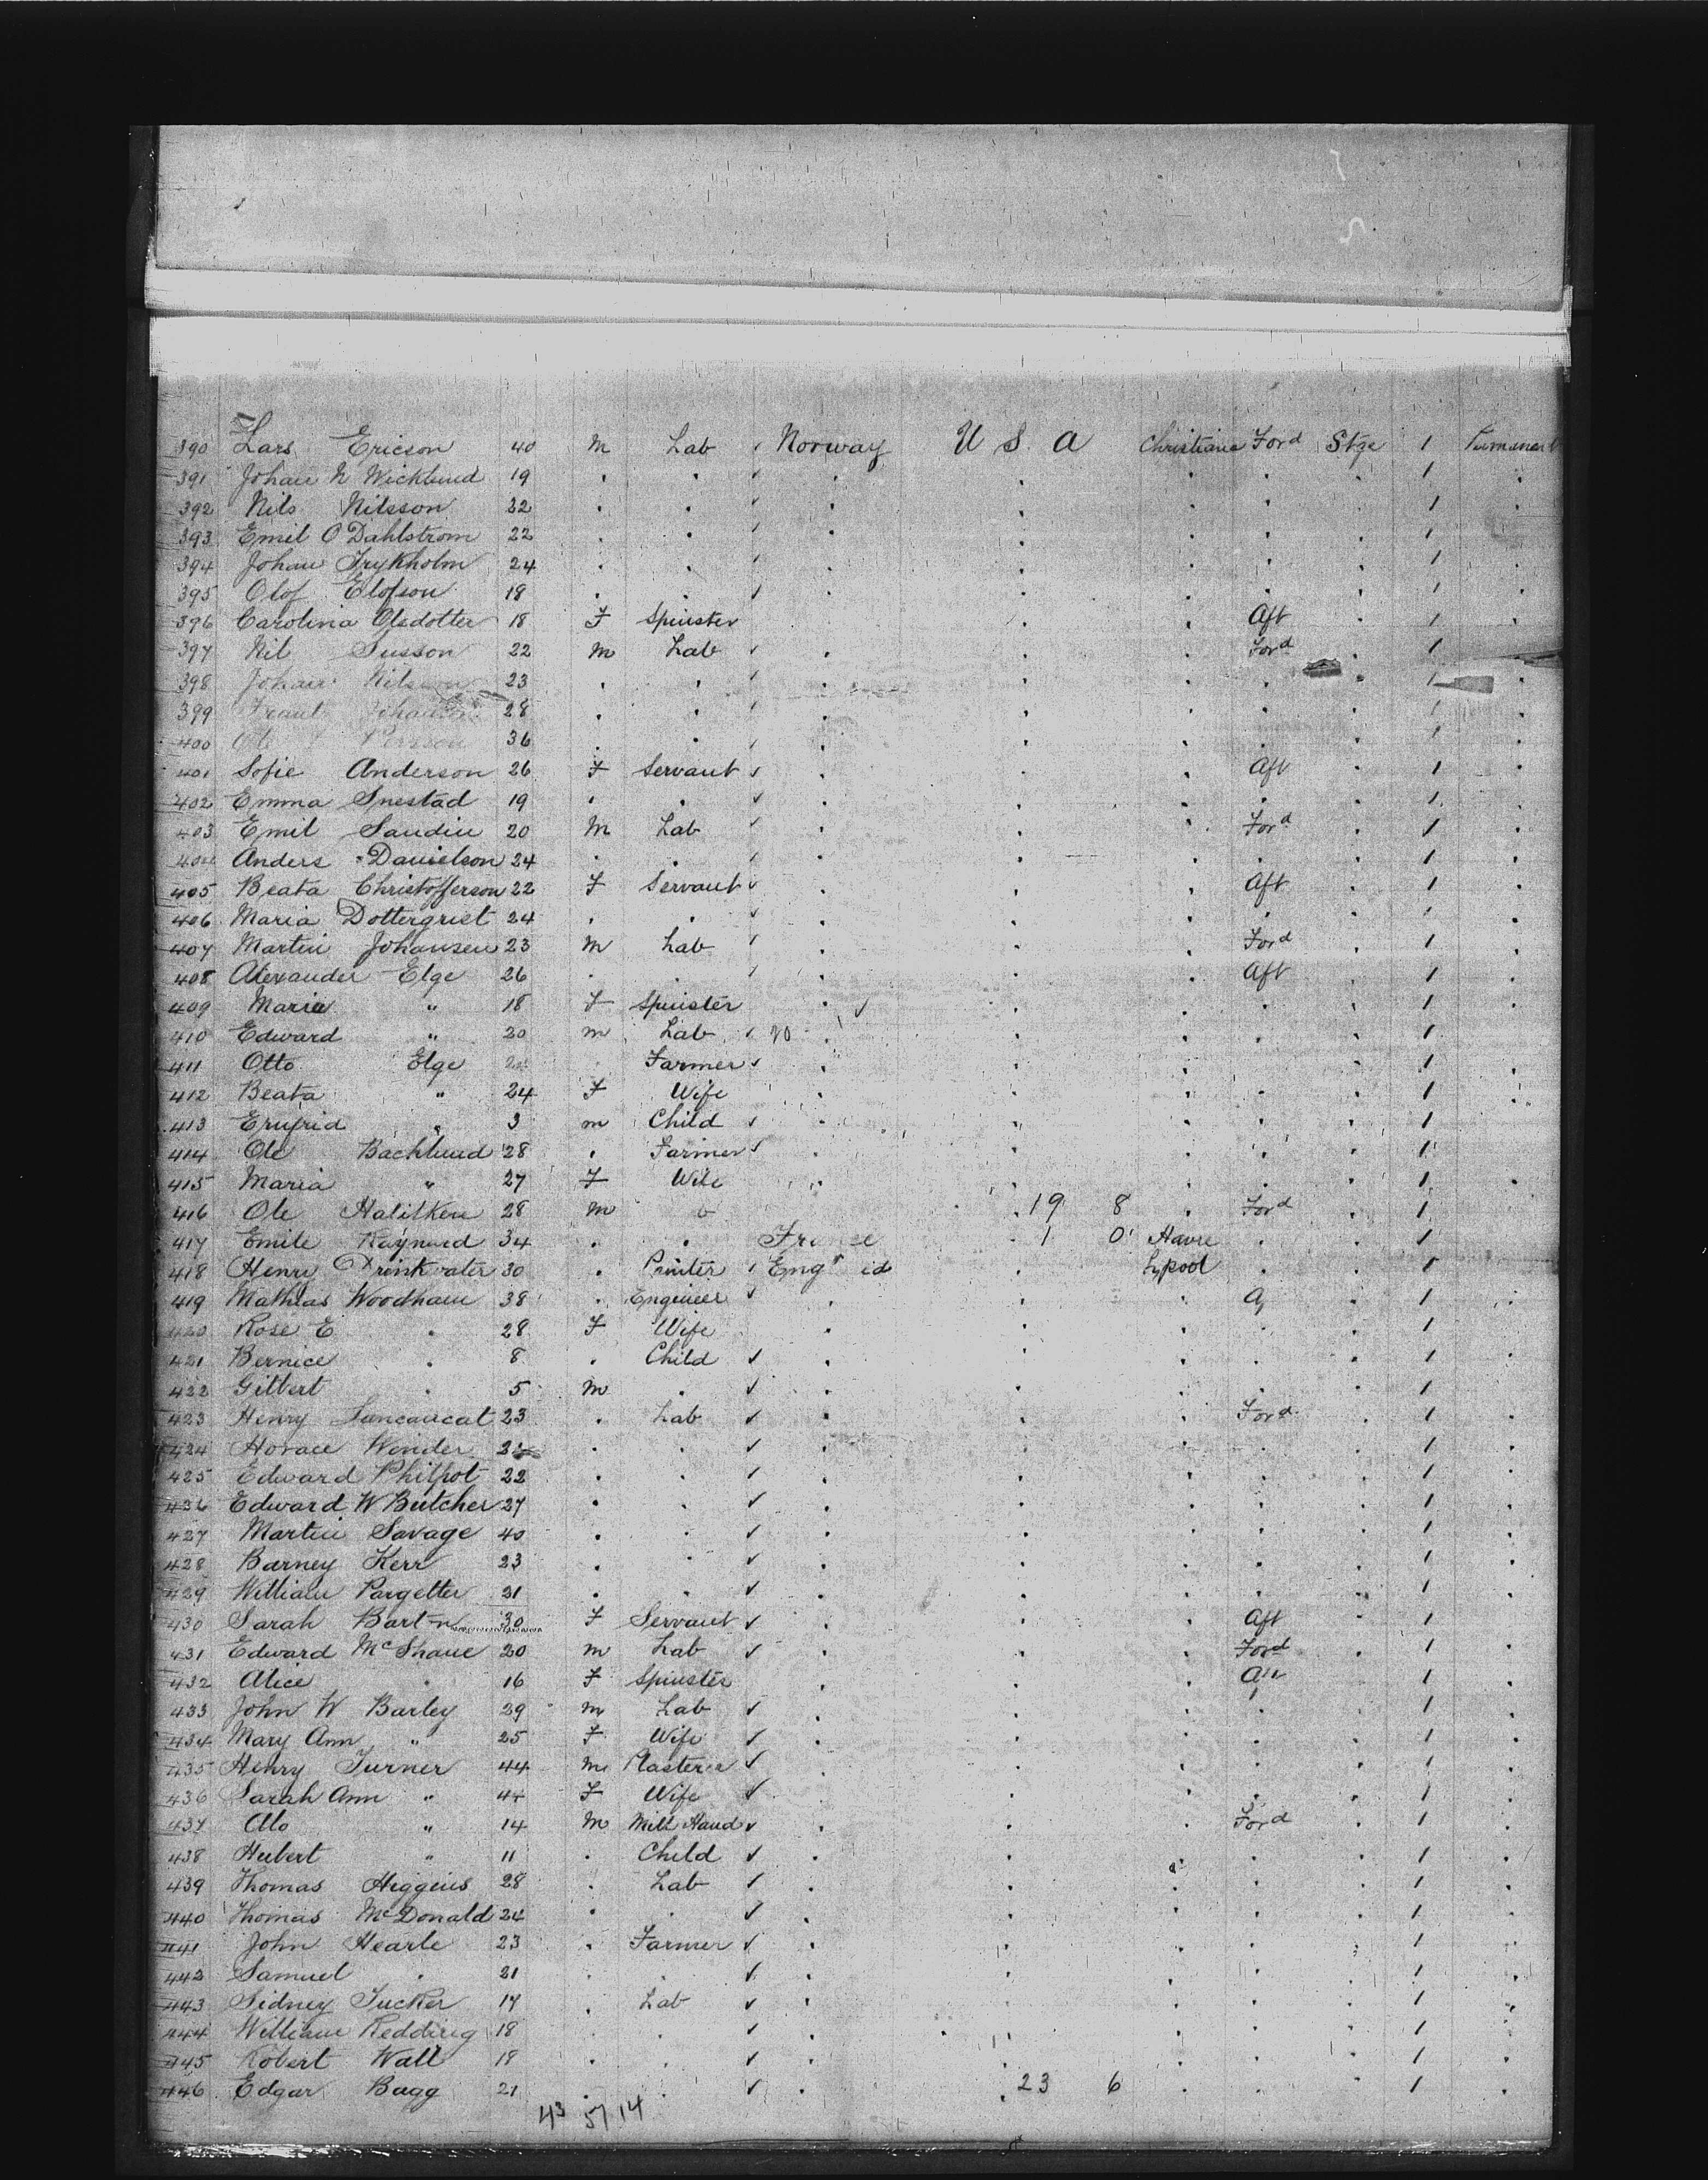 390 Lars Ericson 40 m Lab ✓ Norway U S. A Christiania Ford Stge 1 Permanent
391 Johan N Wicklund 19 . . ✓ . . . . . 1 .
392 Nils Nilsson 22 . . ✓ . . . . . 1 .
393 Emil O Dahlstrom 22 . . ✓ . . . . . 1 .
394 Johan Frykholm 24 . . ✓ . . . . . 1 .
395 Olof Elofson 18 . . ✓ . . . . . 1 .
396 Carolina Olsdotter 18 F Spinster . . Aft . 1 .
397 Nil Susson 22 m Lab ✓ . . . Ford . 1
398 Johan Nilsson 23 . . ✓ . . . . . 1 .
399 28 . . ✓ . . . . . 1 .
400 Persson 36 . . ✓ . . . . . 1 .
401 Sofie Anderson 26 F Servant ✓ . . . Aft . 1 .
402 Emma Snestad 19 . . ✓ . . . . . 1 .
403 Emil Sandin 20 M Lab ✓ . . . Ford . 1 .
404 Anders Danielson 24 . . ✓ . . . . . 1 .
405 Beata Christofferson 22 F Servant ✓ . . . Aft . 1 .
406 Maria Dottergriet 24 . . ✓ . . . . . 1 .
407 Martin Johansen 23 m Lab ✓ . . . Ford . 1 .
408 Alexander Elge 26 . . ✓ . . . Aft . 1 .
409 Maria " 18 F Spinster . ✓ . . . . 1 .
410 Edward " 20 m Lab ✓ 20 . . . . . 1 .
411 Otto Elge . Farmer ✓ . . . . . 1 .
412 Beata " 24 F Wife . . . . . 1 .
413 Erufrid " 3 m Child ✓ . . . . . 1 .
414 Ole Backlund 28 . Farmer ✓ . . . . . 1 .
415 Maria " 27 F Wife . . . . . 1 .
416 Ole Halitken 28 m 19 8 . Ford . 1
417 Emile Raynard 34 . . France 1 0 Havre . . 1
418 Henry Drinkwater 30 . Printer ✓ England . Lpool . . 1
419 Mathias Woodham 38 . Engineer ✓ . . . A . 1 .
420 Rose E . 28 F Wife . . . . . 1 .
421 Bernice . 8 . Child ✓ . . . . . 1 .
422 Gilbert . 5 m . ✓ . . . . . 1 .
423 Henry 23 . Lab ✓ . . . Ford . 1 .
424 Horace Winder . . ✓ . . . . . 1 .
425 Edward Philpot 22 . . ✓ . . . . . 1 .
426 Edward W Butcher 27 . . ✓ . . . . . 1 .
427 Martin Savage 40 . . ✓ . . . . . 1 .
428 Barney Kerr 23 . . ✓ . . . . . 1 .
429 William Pargetter 21 . . ✓ . . . . . 1 .
430 Sarah Barton 30 F Servant ✓ . . . Aft . 1 .
431 Edward McShane 20 m Lab ✓ . . . Ford . 1 .
432 Alice . 16 F Spinster . . . Aft . 1 .
433 John W Barley 29 m Lab ✓ . . . . . 1 .
434 Mary Ann " 25 F Wife ✓ . . . . . 1 .
435 Henry Turner 44 m Plasterer ✓ . . . . . 1 .
436 Sarah Ann " 44 F Wife ✓ . . . . . 1 .
437 Alo " 14 M Mill Hand ✓ . . . Ford . 1 .
438 Hubert " 11 . Child ✓ . . . . . 1 .
439 Thomas Higgins 28 . Lab ✓ . . . . . 1 .
440 Thomas McDonald 24 . . ✓ . . . . . 1 .
441 John Hearle 23 . Farmer ✓ . . . . . 1 .
442 Samuel . 21 . . ✓ . . . . . 1 .
443 Sidney Tucker 17 . Lab ✓ . . . . . 1 .
444 William Redding 18 . . ✓ . . . . . 1 .
445 Robert Wall 18 . . ✓ . . . . . 1 .
446 Edgar Bagg 21 . . ✓ . 23 6 . . . 1 .
43 57 14